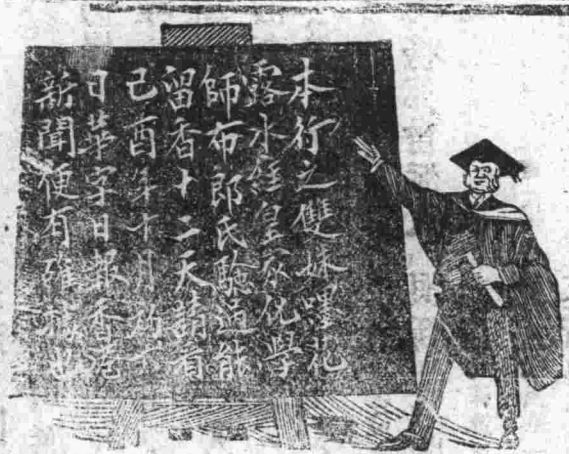 本行之雙妹嘜花
露水經皇家化學
師布郎氏驗過能
留香十二天請看
己酉年十月初十
日華字日報香港
新聞便有確據也